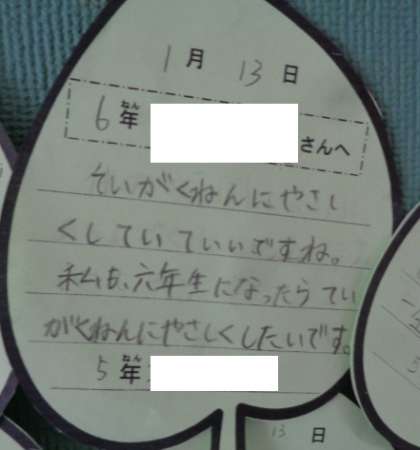 1月13日
ねん
6年 さんへ
ていがくねんにやさし
くしていていいですね。
私も、六年生になったらてい
がくねんにやさしくしたいです。
ねん
5年
13 日